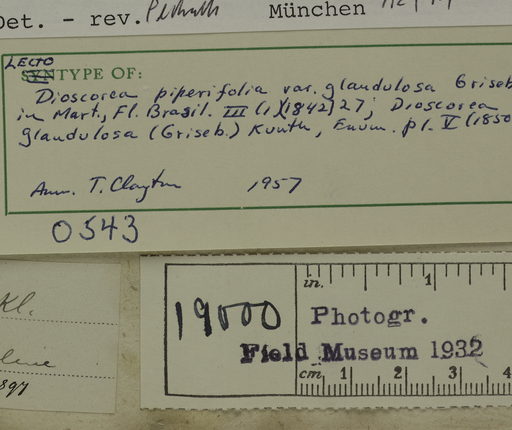 Det. - rev. München
LECTO
SYNTYPE OF:
Dioscorea piperifolia var. glandulosa Griseb
in Mart., Fl. Brasil. III (1)(1842) 27; Dioscorea
glandulosa (Griseb.) Kunth, Enum. pl. V (1850
Ann. T. Clayton 1957
0543
Kl.
897
in. 1
19000 Photogr.
Field Museum 1932
cm 1 2 3 4